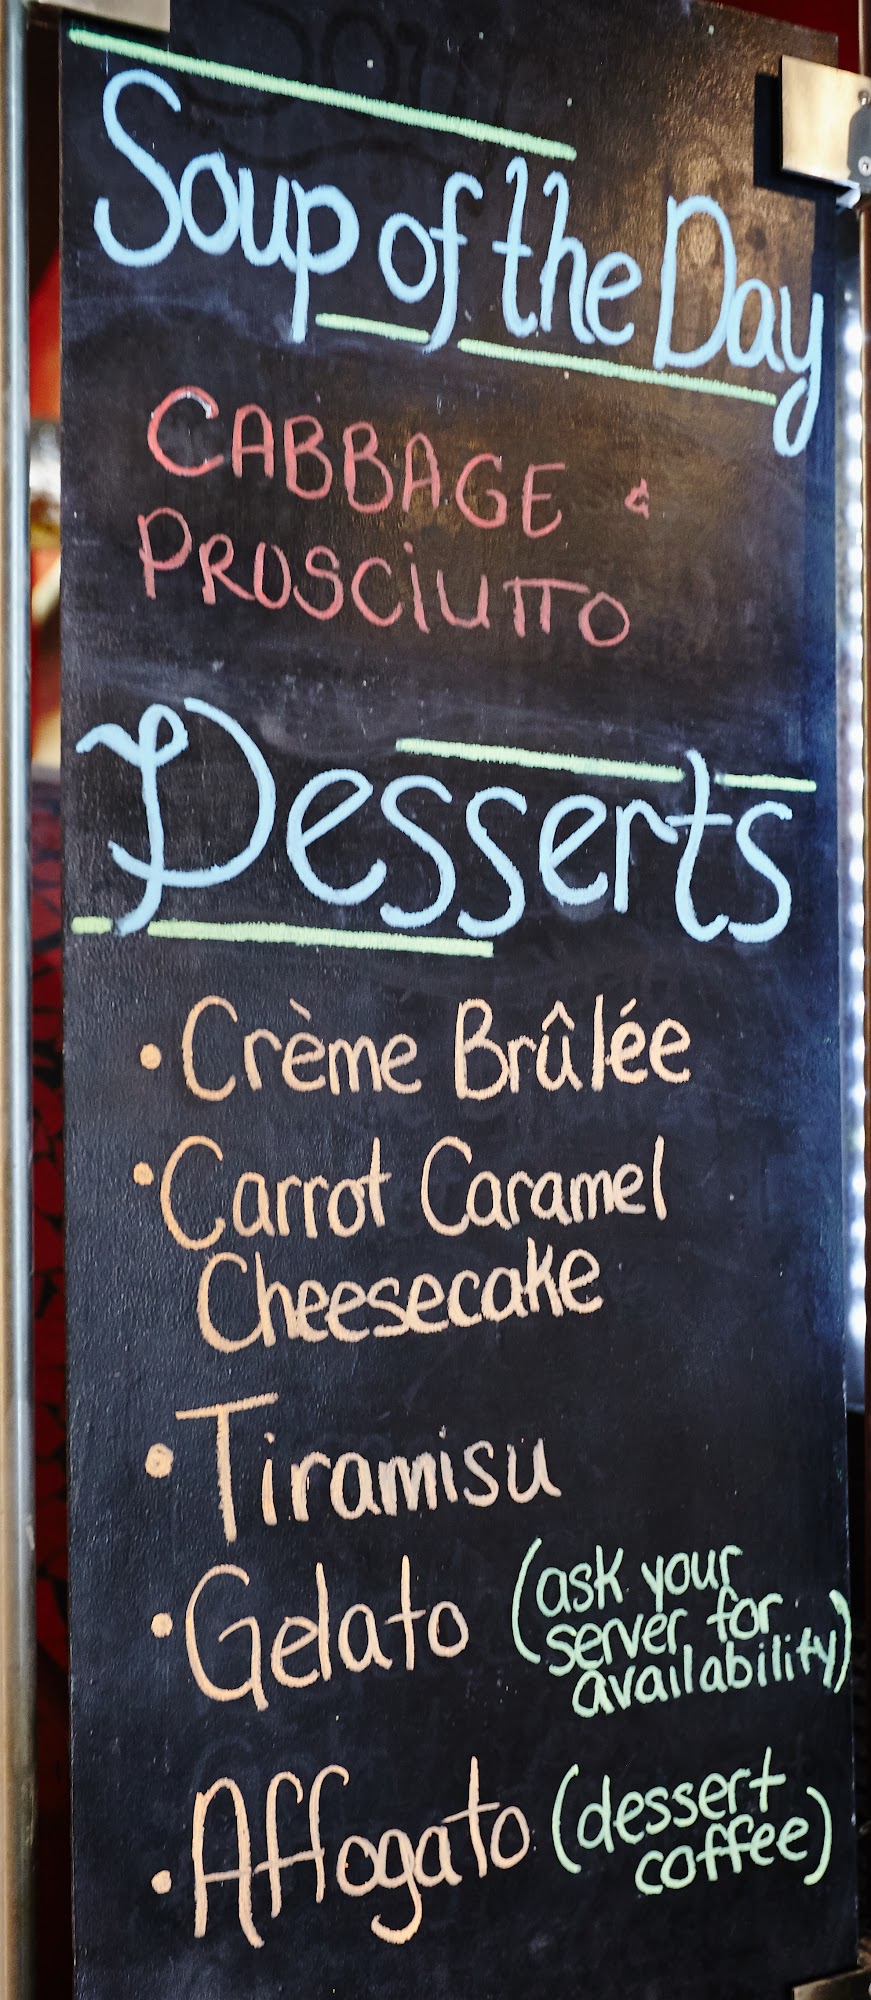 Soup of the Day
CABBAGE &
PROSCIUTTO
Desserts
• Crème Brûlée
• Carrot Caramel
Cheesecake
• Tiramisu
• Gelato (ask your
server for
availability)
• Affogato (dessert
coffee)